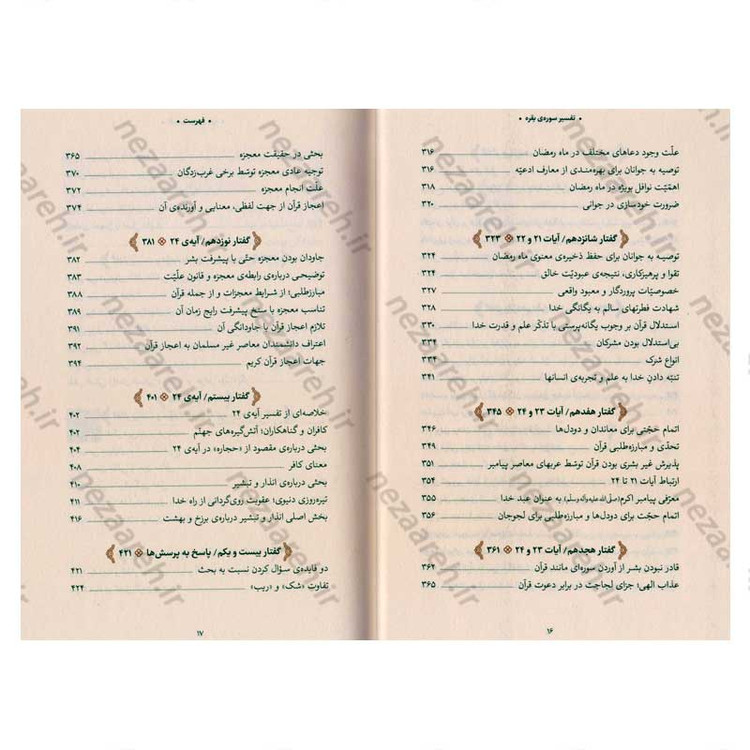 • تفسیر سوره‌ی بقره •
علّت وجود دعاهای مختلف در ماه رمضان ۳۱۶
توصیه به جوانان برای بهره‌مندی از معارف ادعیّه ۳۱۶
اهمّیّت نوافل بویژه در ماه رمضان ۳۱۸
ضرورت خودسازی در جوانی ۳۲۰
گفتار شانزدهم/ آیات ۲۱ و ۲۲ ۳۲۳
توصیه به جوانان برای حفظ ذخیره‌ی معنوی ماه رمضان ۳۲۴
تقوا و پرهیزکاری، نتیجه‌ی عبودیّت خالق ۳۲۴
خصوصیّات پروردگار و معبود واقعی ۳۲۷
شهادت فطرتهای سالم به یگانگی خدا ۳۲۸
استدلال قرآن بر وجوب یگانه‌پرستی با تذکّر علم و قدرت خدا ۳۳۰
بی‌استدلال بودن مشرکان ۳۳۴
انواع شرک ۳۳۴
تنبّه دادن خدا به علم و تجربه‌ی انسانها ۳۴۱
گفتار هفدهم/ آیات ۲۳ و ۲۴ ۳۴۵
اتمام حجّتی برای معاندان و دودل‌ها ۳۴۶
تحدّی و مبارزه‌طلبی قرآن ۳۴۹
پذیرش غیر بشری بودن قرآن توسّط عربهای معاصر پیامبر ۳۵۱
ارتباط آیات ۲۱ تا ۲۴
معرّفی پیامبر اکرم(صلّی‌الله‌علیه‌وآله‌وسلّم) به عنوان عبد خدا ۳۵۵
اتمام حجّت برای دودل‌ها و مبارزه‌طلبی برای لجوجان ۳۵۶
گفتار هجدهم/ آیات ۲۳ و ۲۴ ۳۶۱
قادر نبودن بشر از آوردن سوره‌ای مانند قرآن ۳۶۲
عذاب الهی؛ جزای لجاجت در برابر دعوت قرآن ۳۶۵
۱۶
• فهرست •
بحثی در حقیقت معجزه ۳۶۵
توجیه عادی معجزه توسّط برخی غرب‌زدگان ۳۷۰
علّت انجام معجزه ۳۷۲
إعجاز قرآن از جهت لفظی، معنایی و آورنده‌ی آن ۳۷۴
گفتار نوزدهم/ آیه‌ی ۲۴ ۳۸۱
جاودان بودن معجزه حتّی با پیشرفت بشر ۳۸۲
توضیحی درباره‌ی رابطه‌ی معجزه و قانون علّیّت ۳۸۳
مبارزطلبی؛ از شرایط معجزات و از جمله قرآن ۳۸۸
تناسب معجزه با سنخ پیشرفت رایج زمان آن ۳۸۹
تلازم اعجاز قرآن با جاودانگی آن ۳۹۱
اعتراف دانشمندان معاصر غیر مسلمان به اعجاز قرآن ۳۹۲
جهات اعجاز قرآن کریم ۳۹۴
گفتار بیستم/ آیه‌ی ۲۴ ۴۰۱
خلاصه‌ای از تفسیر آیه‌ی ۲۴ ۴۰۲
کافران و گناهکاران؛ آتش‌گیره‌های جهنّم ۴۰۲
بحثی درباره‌ی مقصود از «حجاره» در آیه‌ی ۲۴ ۴۰۴
معنای کافر ۴۰۸
بحثی درباره‌ی انذار و تبشیر ۴۱۰
تیره‌روزی دنیوی؛ عقوبت روی‌گردانی از راه خدا ۴۱۱
بخش اصلی انذار و تبشیر درباره‌ی برزخ و بهشت ۴۱۶
گفتار بیست و یکم/ پاسخ به پرسش‌ها ۴۲۱
دو فایده‌ی سؤال کردن نسبت به بحث ۴۲۱
تفاوت «شک» و «ریب» ۴۲۴
۱۷
nezaareh.ir